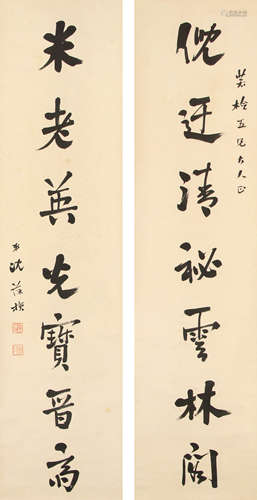 五兄大人正
倪迂清祕雲林閣
米老英光寶晉齋
弟沈葆楨